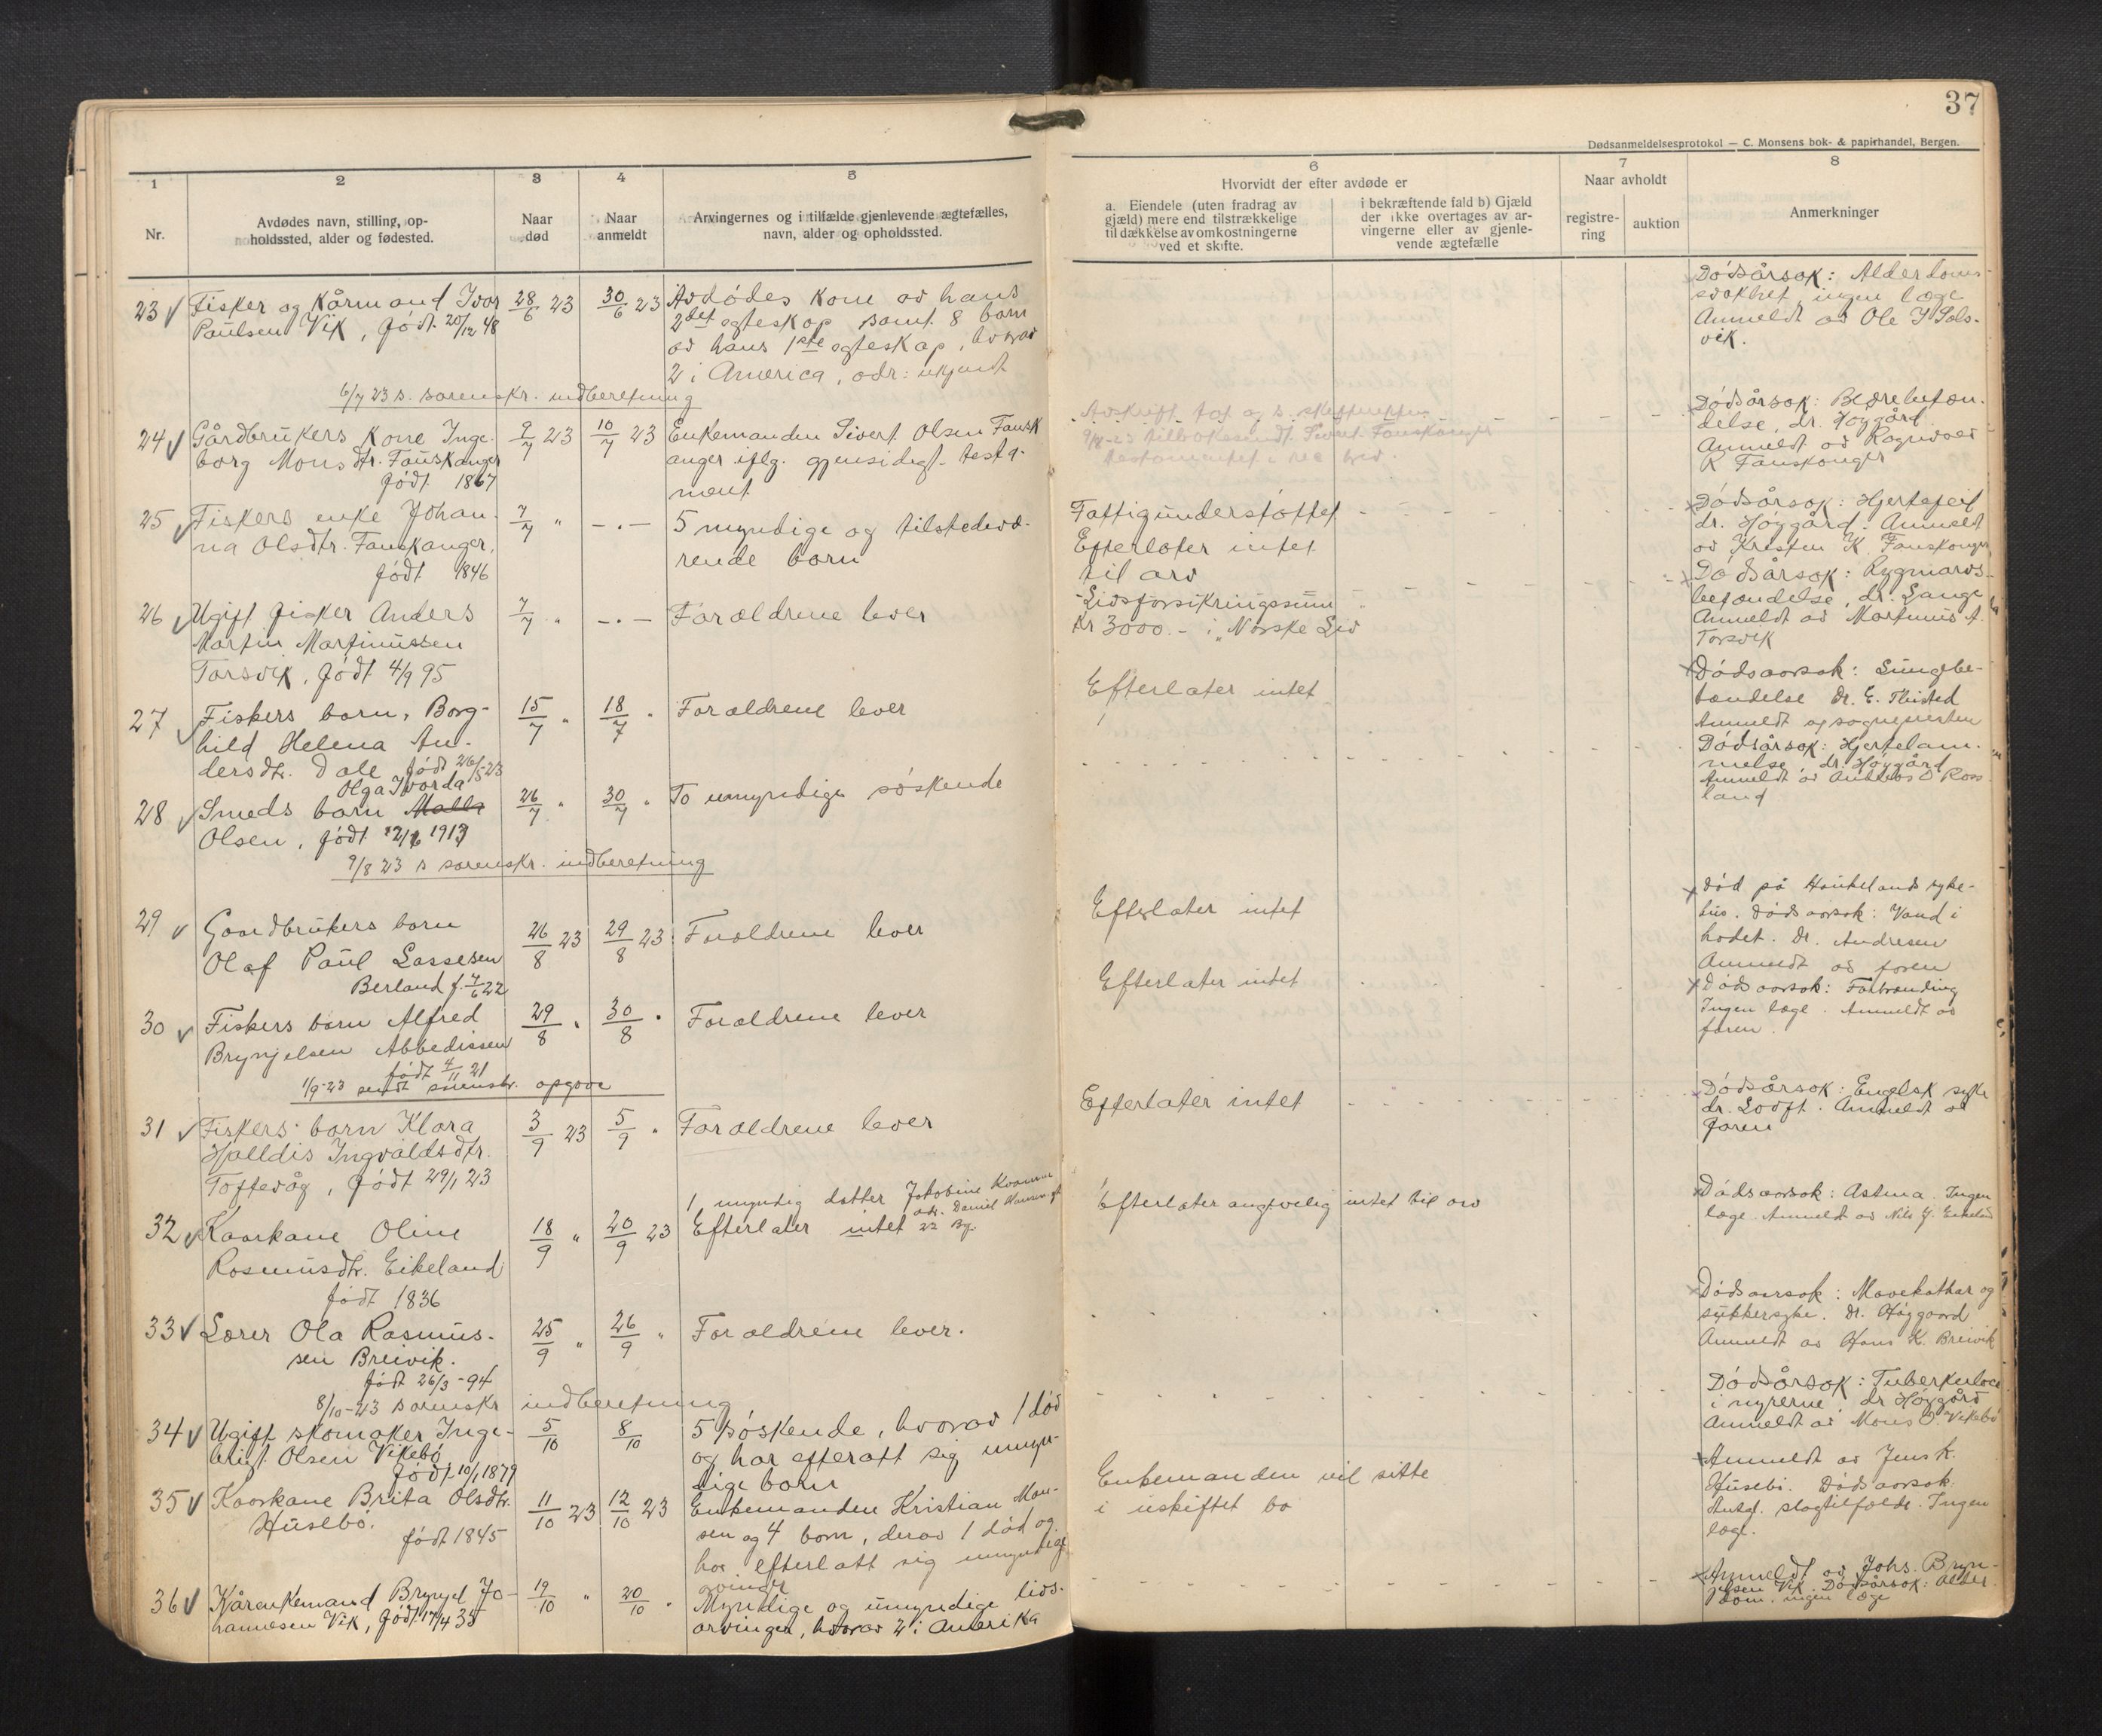 37
Dødsanmeldelsesprotokol — C. Monsens bok- & papirhandel, Bergen.
1
Nr.
2
Avdødes navn, stilling, op-
holdssted, alder og fødested.
3
Naar
død
4
Naar
anmeldt
5
Arvingernes og i tilfælde gjenlevende ægtefælles,
navn, alder og opholdssted.
6
Hvorvidt der efter avdøde er
a. Eiendele (uten fradrag av
gjæld) mere end tilstrækkelige
til dækkelse av omkostningerne
ved et skifte.
i bekræftende fald b) Gjæld
der ikke overtages av ar-
vingerne eller av gjenle-
vende ægtefælle
7
Naar avholdt
registre-
ring
auktion
8
Anmerkninger
23 Fisker og kårmand Ivar
Paulsen Vik, født 20/12 48
28/6 23
30/6 23
Avdødes kone av hans
2det egteskap samt 8 barn
av hans 1ste egteskap, hvorav
2 i America, adr: ukjendt
Dødsårsak: Alderdoms-
svakhet, ingen læge
Anmeldt av Ole I Sols-
vik.
6/7 23 s. sorenskr. indberetning
24 Gårdbrukers kone Inge-
borg Monsdtr. Fauskanger
født 1867
9/7 23
10/7 23
Enkemanden Sivert Olsen Fausk
anger iflg. gjensidigt testa-
ment
Avskrift
9/8-23 tilbakesendt Sivert Fauskanger
Dødsårsak:
delse, dr. Høygård
Anmeldt av Ragnvald
R Fauskanger
25 Fiskers enke Johan-
na Olsdtr. Fauskanger,
født 1846
7/7 "
— . —
5 myndige og tilstedevæ-
rende barn
Fattigunderstøttet
Efterlater intet
til arv
Dødsårsak: Hjertefeil
dr. Høygård. Anmeldt
av Kristen K. Fauskanger
26 Ugift fisker Anders
Martin Martinussen
Torsvik, født 4/9 95
7/7 "
— . —
Forældrene lever
Livsforsikringssum
Kr 3000.- i "Norske Liv
Dødsårsak: Rygmarvs-
betændelse, dr. Lange
Anmeldt av Martinus A.
Torsvik
27 Fiskers barn, Borg-
hild Helena An-
dersdtr. Dale født 26/5-23
15/7 "
18/7 "
Forældrene lever
Efterlater intet
Dødsaarsak: Lungebe-
tændelse Dr. E. Thisted
Anmeldt av sognepresten
Olga Ivarda
28 Smeds barn
Olsen, født 12/6 1917
26/7 "
30/7 "
To umyndige søskende
Dødsårsak: Hjertelam-
melse, dr. Høygård
Anmeldt av Andreas O Ross
land
9/8 23 s sorenskr. indberetning
29 Gaardbrukers barn
Olaf Paul Lassesen
Berland f. 7/6 22
26/8 23
29/8 23
Forældrene lever
Efterlater intet
død på Haukelands syke-
hus. Dødsaarsak: Vand i
hodet. Dr. Andresen
Anmeldt av faren
30 Fiskers barn Alfred
Brynjelsen Abbedissen
født 4/11 21
29/8 "
30/8 "
Forældrene lever
Efterlater intet
Dødsaarsak: Forbrænding
Ingen læge. Anmeldt av
faren.
1/9-23 sendt sorenskr. opgave
31 Fiskers barn Klara
Halldis Ingvaldsdtr.
Toftevåg, født 29/1 23
3/9 23
5/9 "
Forældrene lever
Efterlater intet
Dødsårsak: Engelsk syke
dr. Lodft. Anmeldt av
faren
32 Kaarkone Oline
Rasmusdtr. Eikeland
født 1836
18/9 "
20/9 23
1 myndig datter Jakobine
adr. Daniel Hansens gt
Efterlater intet 22 Bg.
Efterlater angivelig intet til arv
Dødsaarsak: Astma. Ingen
læge. Anmeldt av Nils J. Eikeland
33 Lærer Ola Rasmus-
sen Breivik.
født 26/3-94
25/9 "
26/9 "
Forældrene lever.
Dødsaarsak: Mavekathar og
sukkersyke. Dr. Høygaard
Anmeldt av Hans K. Breivik
8/10-23 sorenskr indberetning
34 Ugift skomaker Inge-
brigt Olsen Vikebø
født 10/1 1879
5/10
8/10
5 søskende, hvorav 1 død
og har efterlatt sig umyn-
dige barn
Dødsårsak: Tuberkulose
i nyrerne, dr Høygård
Anmeldt av Mons O. Vikebø
35 Kaarkone Brita Olsdtr.
Husebø.
født 1845
11/10 23
12/10 23
Enkemanden Kristian Mon-
sen og 4 barn, derav 1 død og
har efterlatt sig umyndige
arvinger
Enkemanden vil sitte
i uskiftet bo
Anmeldt av Jens K.
Husebø. Dødsaarsak:
Antagl. slagtilfælde. Ingen
læge.
36 Kårenkemand Brynjel Jo-
hannesen Vik, født 17/4 35
19/10 "
20/10 "
Myndige og umyndige livs-
arvinger, hvorav 2 i Amerika
Anmeldt av Johs. Bryn-
jelsen Vik. Dødsårsak: Alder
dom. ingen læge